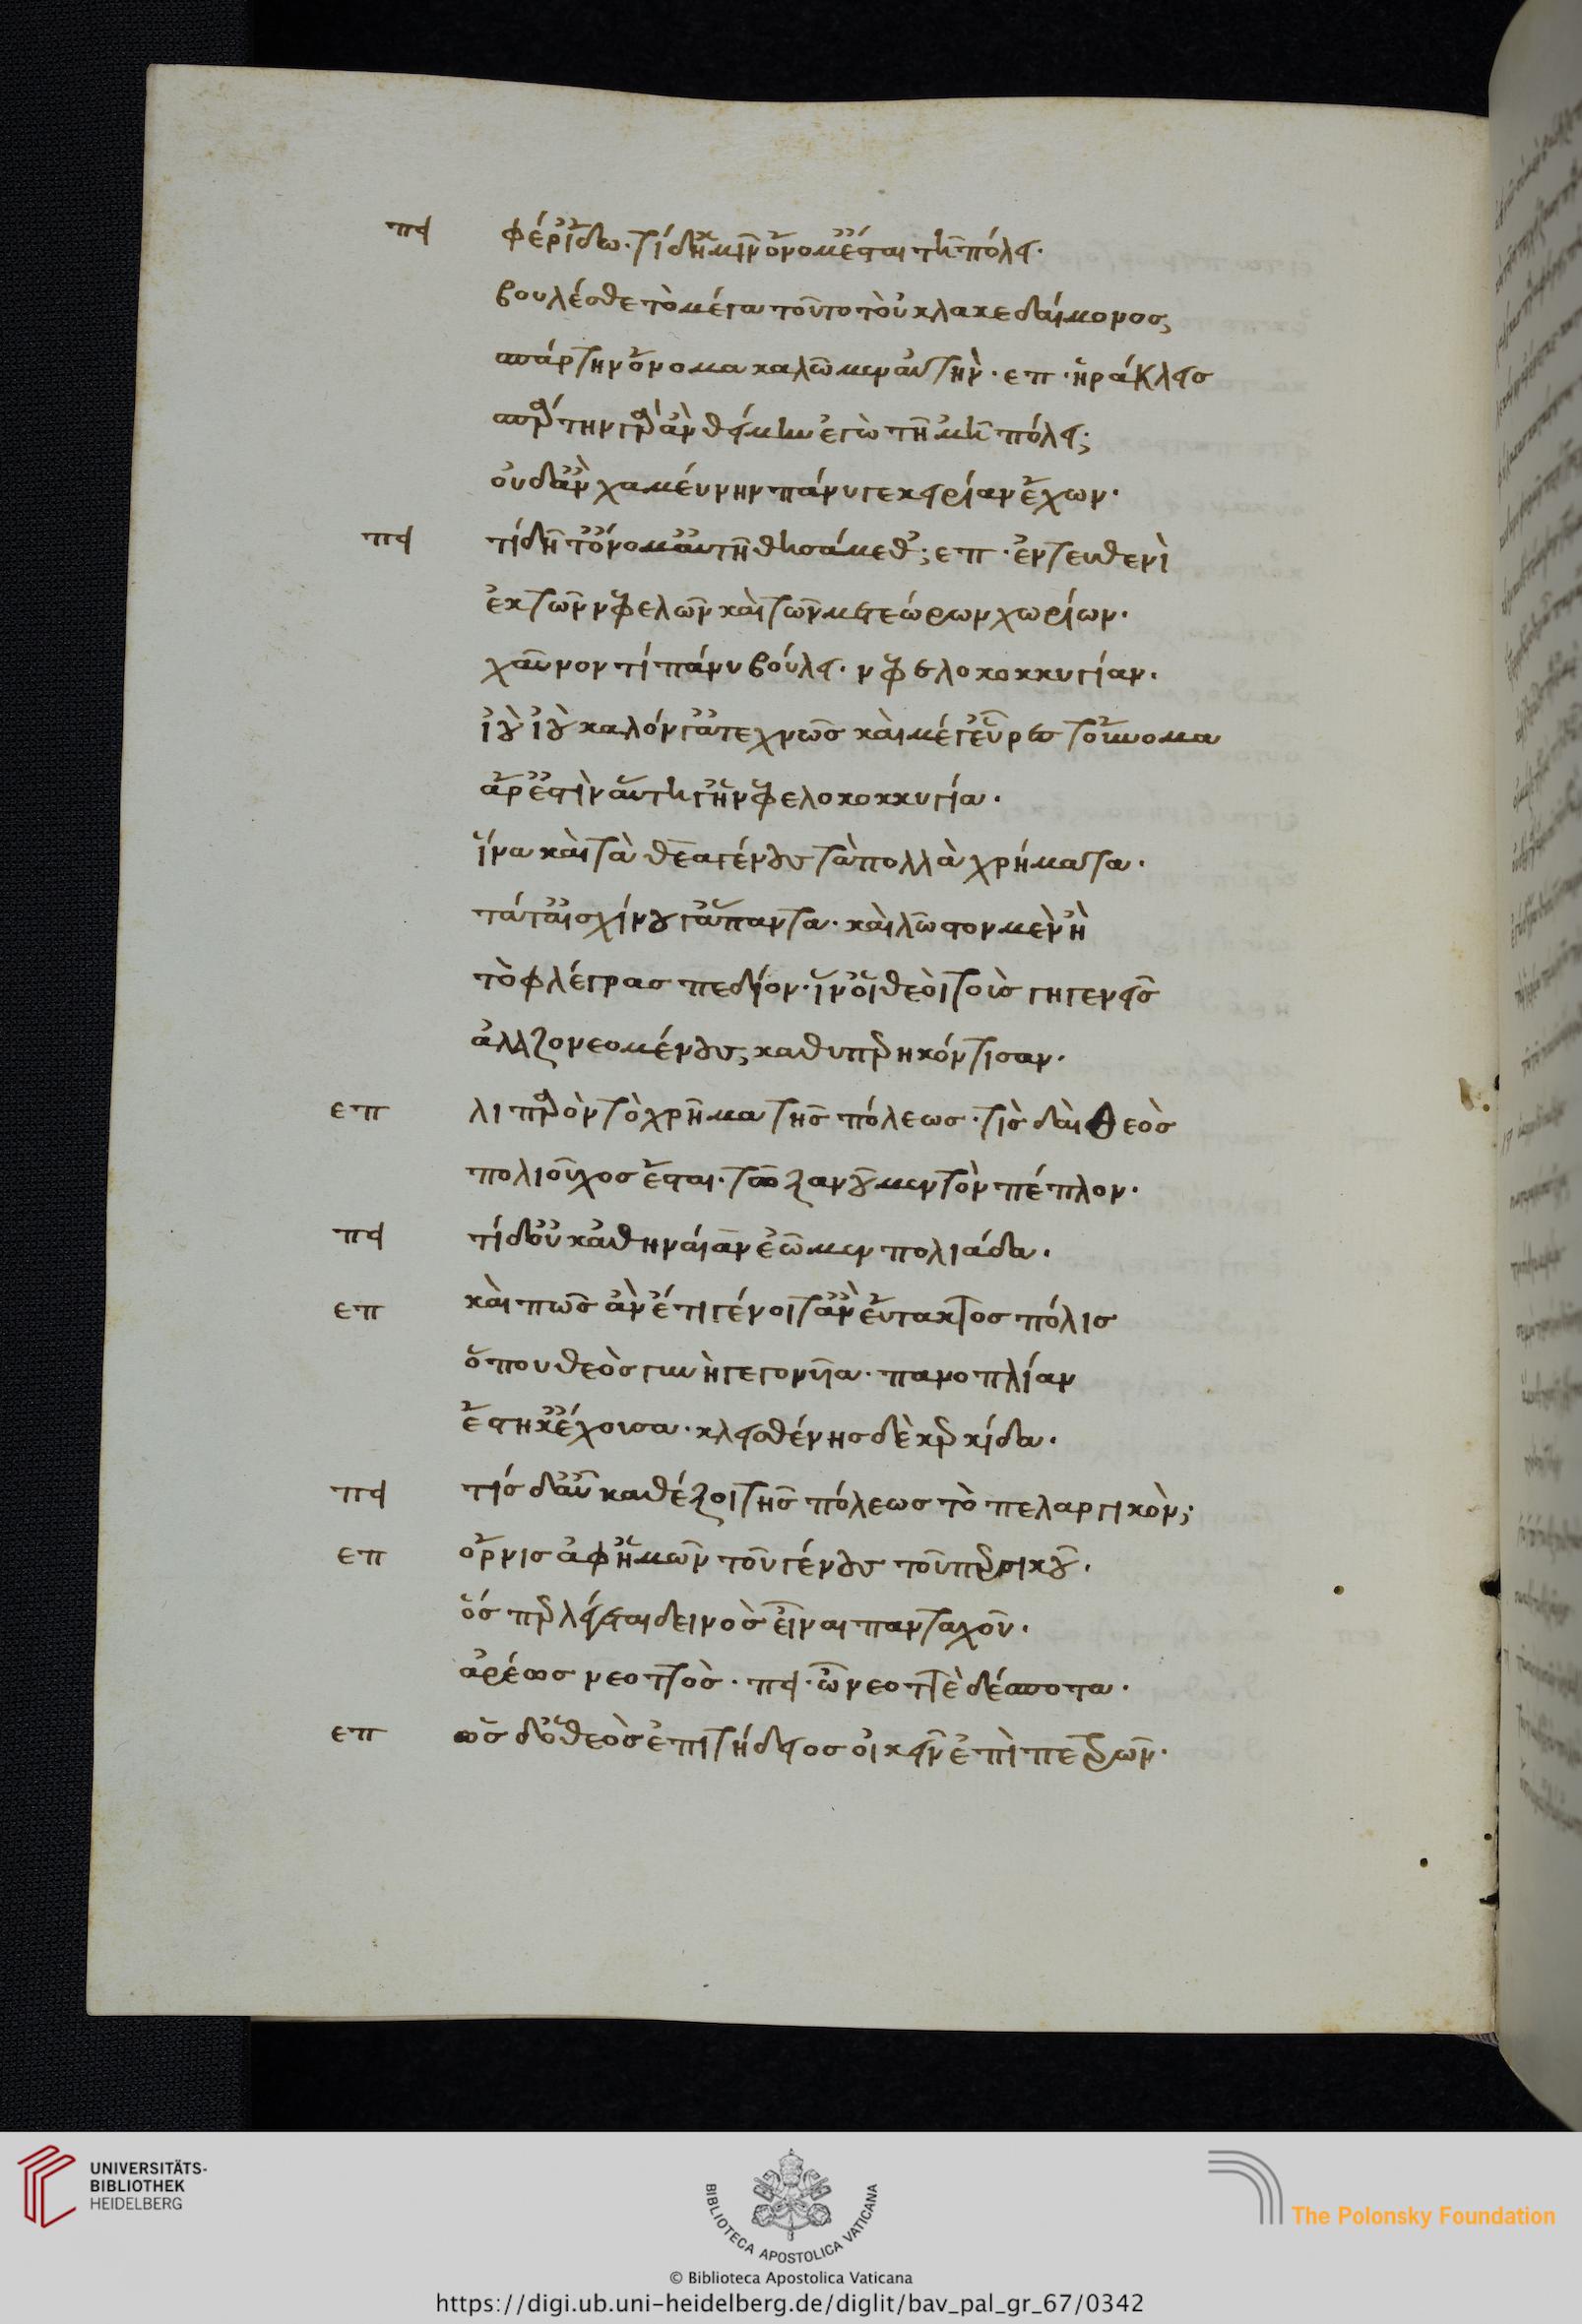 πει φέρἴδω· τί δ' ἡμῖν ὄνομ' ἔσται τῇ πόλει·
βούλεσθε τὸ μέγα τοῦτο τοὐκ λακεδαίμονος,
σπάρτην ὄνομα καλῶμεν αὐτήν· επ · ἡράκλεις
σπάρτην γὰρ ἂν θείμην ἐγὼ τῇ ἐμῇ πόλει;
οὐδ' ἂν χαμεύνην πάνυ γε κειρίαν ἔχων·
πει τί δῆτ' ὄνομ' αὐτῇ θησόμεθ'; επ · ἐντευθενὶ
ἐκ τῶν νεφελῶν καὶ τῶν μετεώρων χωρίων·
χαῦνον τί πάνυ βούλει· νεφελοκοκκυγίαν·
ἰοὺ ἰοὺ καλόν γ' ἀτεχνῶς καὶ μέγ' εὗρες τοὔνομα
ἆρ' ἐστὶν αὕτη γ' ἡ νεφελοκοκκυγία·
ἵνα καὶ τὰ θεαγένους τὰ πολλὰ χρήματα·
τά τ' αἰσχίνου γ' ἅπαντα· καὶ λῶστον μὲν ἢ
τὸ φλέγρας πεδίον· ἵν' οἱ θεοὶ τοὺς γηγενεῖς
ἀλαζονεομένους καθυπερηκόντισαν·
επ λιπαρὸν τὸ χρῆμα τῆς πόλεως· τίς δαὶ θεὸς
πολιοῦχος ἔσται· τῷ ξανοῦμεν τὸν πέπλον·
πει τί δ' οὐκ ἀθηναίαν ἐῶμεν πολιάδα·
επ καὶ πῶς ἂν ἔτι γένοιτ' ἂν εὔτακτος πόλις
ὅπου θεὸς γυνὴ γεγονυῖα· πανοπλίαν
ἕστηκ' ἔχουσα· κλεισθένης δὲ κερκίδα·
πει τίς δ' αὖ καθέξει τῆς πόλεως τὸ πελαργικὸν;
επ ὄρνις ἀφ' ἡμῶν τοῦ γένους τοῦ περσικοῦ·
ὅς περ λέγεται δεινὸς εἶναι πανταχοῦ·
ἄρέως νεοττὸς · πει · ὦ νεοττὲ δέσποτα·
επ ὡς δ' ὁ θεὸς ἐπιτήδειος οἰκεῖν ἐπὶ πετρῶν·
UNIVERSITÄTS-
BIBLIOTHEK
HEIDELBERG
BIBLIOTECA APOSTOLICA VATICANA
The Polonsky Foundation
© Biblioteca Apostolica Vaticana
https://digi.ub.uni-heidelberg.de/diglit/bav_pal_gr_67/0342